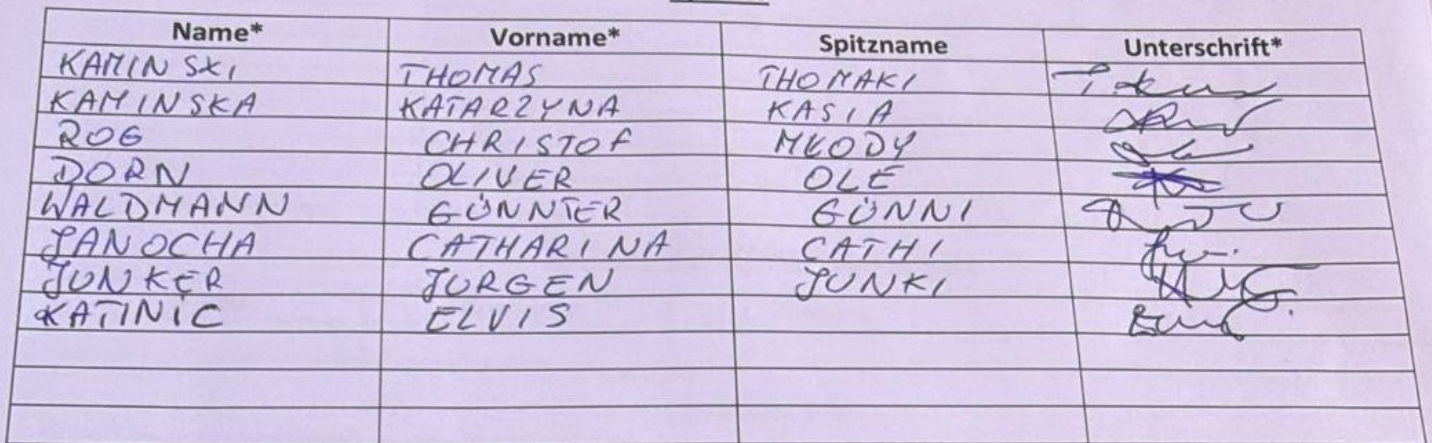 Name* Vorname* Spitzname Unterschrift*
KAMINSKI THOMAS THOMAKI
KAMINSKA KATARZYNA KASIA
ROG CHRISTOF MKODY
DORN OLIVER OLE
WALDMANN GÜNNTER GÜNNI
JANOCHA CATHARINA CATHI
JUNKER JÜRGEN JUNKI
KATINIC ELVIS